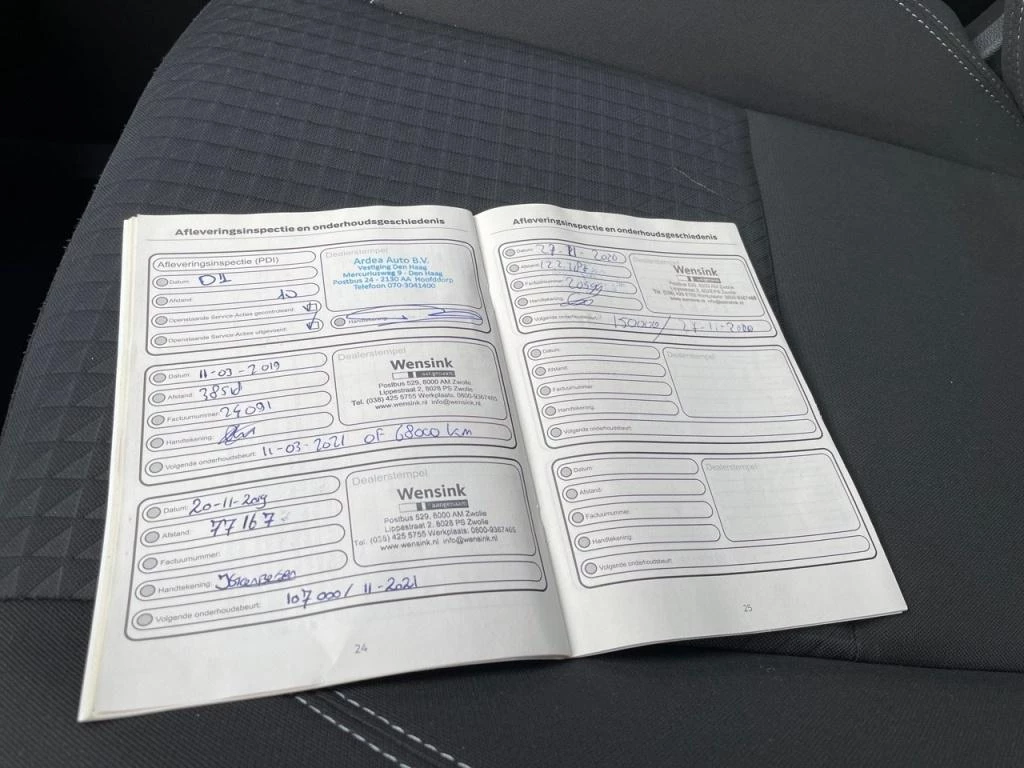 Afleveringsinspectie en onderhoudsgeschiedenis
Afleveringsinspectie (PDI)
Datum:
Afstand: 10
Openstaande Service-Acties gecontroleerd:
Openstaande Service-Acties uitgevoerd:
Dealerstempel
Ardea Auto B.V.
Vestiging Den Haag
Mercuriusweg 9 - Den Haag
Postbus 24 - 2130 AA Hoofddorp
Telefoon 070-3041400
Handtekening:
Datum: 11-03-2019
Afstand:
Factuurnummer: 24091
Handtekening:
Volgende onderhoudsbeurt: 11-03-2021 OF 68000 km
Dealerstempel
Wensink
aangenaam
Postbus 529, 8000 AM Zwolle
Lippestraat 2, 8028 PS Zwolle
Tel. (038) 425 5755 Werkplaats: 0800-9367465
www.wensink.nl info@wensink.nl
Datum: 20-11-2019
Afstand: 77167
Factuurnummer:
Handtekening:
Volgende onderhoudsbeurt: 107000/ 11-2021
Dealerstempel
Wensink
aangenaam
Postbus 529, 8000 AM Zwolle
Lippestraat 2, 8028 PS Zwolle
Tel. (038) 425 5755 Werkplaats: 0800-9367465
www.wensink.nl info@wensink.nl
24
Afleveringsinspectie en onderhoudsgeschiedenis
Datum: 27-11-2020
Afstand:
Factuurnummer:
Handtekening:
Volgende onderhoudsbeurt: 150000/
Dealerstempel
Wensink
aangenaam
Postbus 529, 8000 AM Zwolle
Lippestraat 2, 8028 PS Zwolle
Tel. (038) 425 5755 Werkplaats: 0800-9367465
www.wensink.nl info@wensink.nl
Datum:
Afstand:
Factuurnummer:
Handtekening:
Volgende onderhoudsbeurt:
Dealerstempel
Datum:
Afstand:
Factuurnummer:
Handtekening:
Volgende onderhoudsbeurt:
Dealerstempel
25